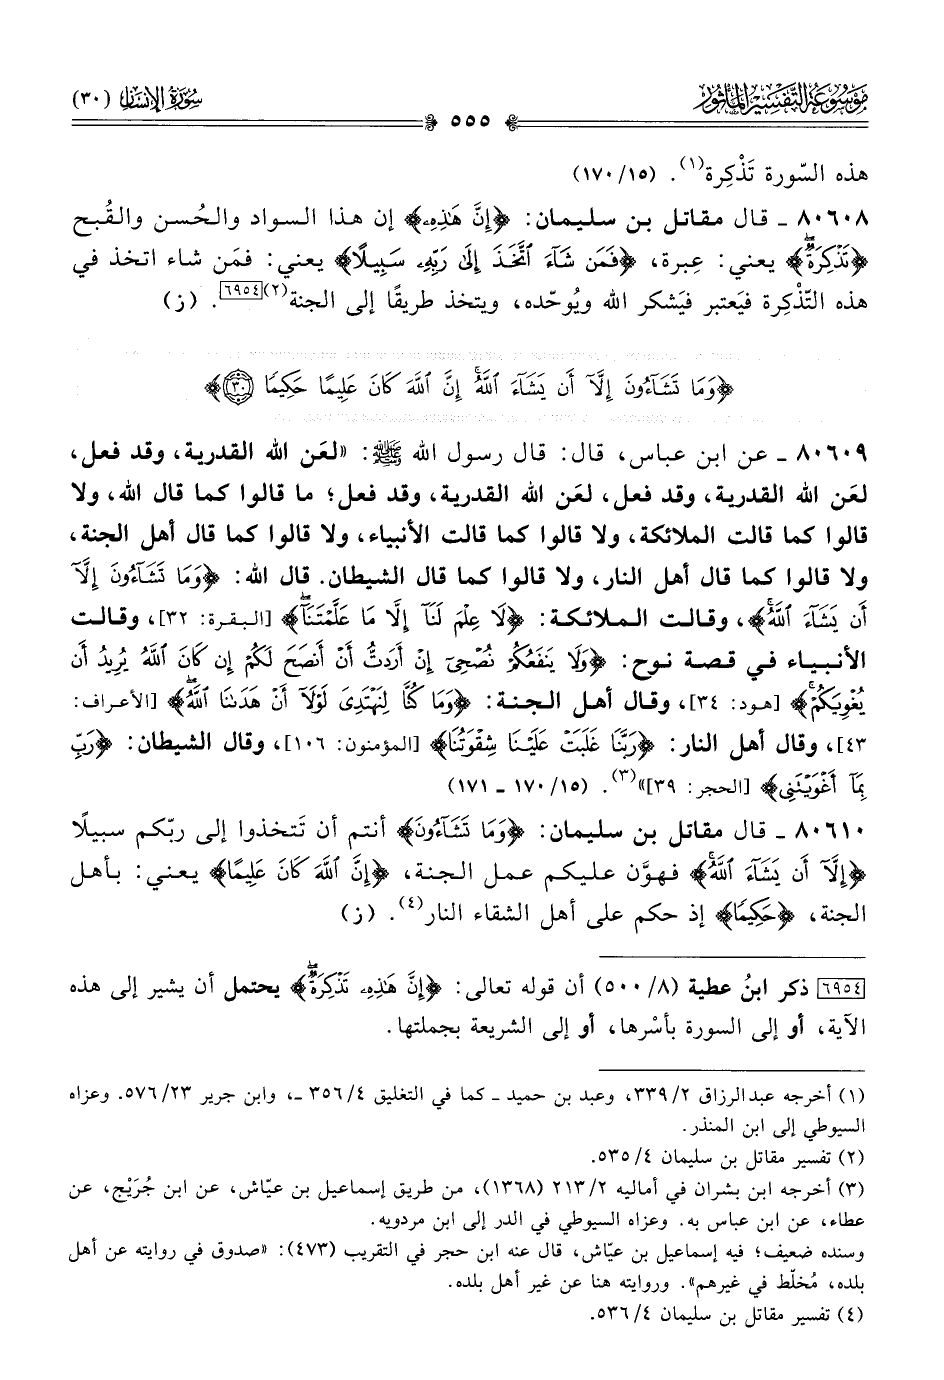 موسوعة التفسير المأثور
سورة الإنسان (٣٠)
٥٥٥
هذه السّورة تَذْكِرة(١). (١٧٠/١٥)
٨٠٦٠٨ ـ قال مقاتل بن سليمان: ﴿إِنَّ هَٰذِهِۦ﴾ إن هذا السواد والحُسن والقُبح
﴿تَذْكِرَةٌۖ﴾ يعني: عِبرة، ﴿فَمَن شَآءَ ٱتَّخَذَ إِلَىٰ رَبِّهِۦ سَبِيلًا﴾ يعني: فمَن شاء اتخذ في
هذه التّذْكِرة فيَعتبر فيَشكر الله ويُوحّده، ويتخذ طريقًا إلى الجنة(٢)[٦٩٥٤]. (ز)
﴿وَمَا تَشَآءُونَ إِلَّآ أَن يَشَآءَ ٱللَّهُۚ إِنَّ ٱللَّهَ كَانَ عَلِيمًا حَكِيمًا ۝٣٠﴾
٨٠٦٠٩ ـ عن ابن عباس، قال: قال رسول الله ﷺ: «لعَن الله القدرية، وقد فعل،
لعَن الله القدرية، وقد فعل، لعَن الله القدرية، وقد فعل؛ ما قالوا كما قال الله، ولا
قالوا كما قالت الملائكة، ولا قالوا كما قالت الأنبياء، ولا قالوا كما قال أهل الجنة،
ولا قالوا كما قال أهل النار، ولا قالوا كما قال الشيطان. قال الله: ﴿وَمَا تَشَآءُونَ إِلَّآ
أَن يَشَآءَ ٱللَّهُۚ﴾، وقالت الملائكة: ﴿لَا عِلْمَ لَنَآ إِلَّا مَا عَلَّمْتَنَآۖ﴾ [البقرة: ٣٢]، وقالت
الأنبياء في قصة نوح: ﴿وَلَا يَنفَعُكُمْ نُصْحِىٓ إِنْ أَرَدتُّ أَنْ أَنصَحَ لَكُمْ إِن كَانَ ٱللَّهُ يُرِيدُ أَن
يُغْوِيَكُمْۚ﴾ [هود: ٣٤]، وقال أهل الجنة: ﴿وَمَا كُنَّا لِنَهْتَدِىَ لَوْلَآ أَنْ هَدَىٰنَا ٱللَّهُۖ﴾ [الأعراف:
٤٣]، وقال أهل النار: ﴿رَبَّنَا غَلَبَتْ عَلَيْنَا شِقْوَتُنَا﴾ [المؤمنون: ١٠٦]، وقال الشيطان: ﴿رَبِّ
بِمَآ أَغْوَيْتَنِى﴾ [الحجر: ٣٩]»(٣). (١٧٠/١٥ ـ ١٧١)
٨٠٦١٠ ـ قال مقاتل بن سليمان: ﴿وَمَا تَشَآءُونَ﴾ أنتم أن تَتخذوا إلى ربّكم سبيلًا
﴿إِلَّآ أَن يَشَآءَ ٱللَّهُۚ﴾ فهوَّن عليكم عمل الجنة، ﴿إِنَّ ٱللَّهَ كَانَ عَلِيمًا﴾ يعني: بأهل
الجنة، ﴿حَكِيمًا﴾ إذ حكم على أهل الشقاء النار(٤). (ز)
[٦٩٥٤] ذكر ابنُ عطية (٨/ ٥٠٠) أن قوله تعالى: ﴿إِنَّ هَٰذِهِۦ تَذْكِرَةٌۖ﴾ يحتمل أن يشير إلى هذه
الآية، أو إلى السورة بأسْرها، أو إلى الشريعة بجملتها.
(١) أخرجه عبدالرزاق ٣٣٩/٢، وعبد بن حميد ـ كما في التغليق ٣٥٦/٤ ـ، وابن جرير ٥٧٦/٢٣. وعزاه
السيوطي إلى ابن المنذر.
(٢) تفسير مقاتل بن سليمان ٥٣٥/٤.
(٣) أخرجه ابن بشران في أماليه ٢١٣/٢ (١٣٦٨)، من طريق إسماعيل بن عيّاش، عن ابن جُرَيْج، عن
عطاء، عن ابن عباس به. وعزاه السيوطي في الدر إلى ابن مردويه.
وسنده ضعيف؛ فيه إسماعيل بن عيّاش، قال عنه ابن حجر في التقريب (٤٧٣): «صدوق في روايته عن أهل
بلده، مُخلّط في غيرهم». وروايته هنا عن غير أهل بلده.
(٤) تفسير مقاتل بن سليمان ٥٣٦/٤.